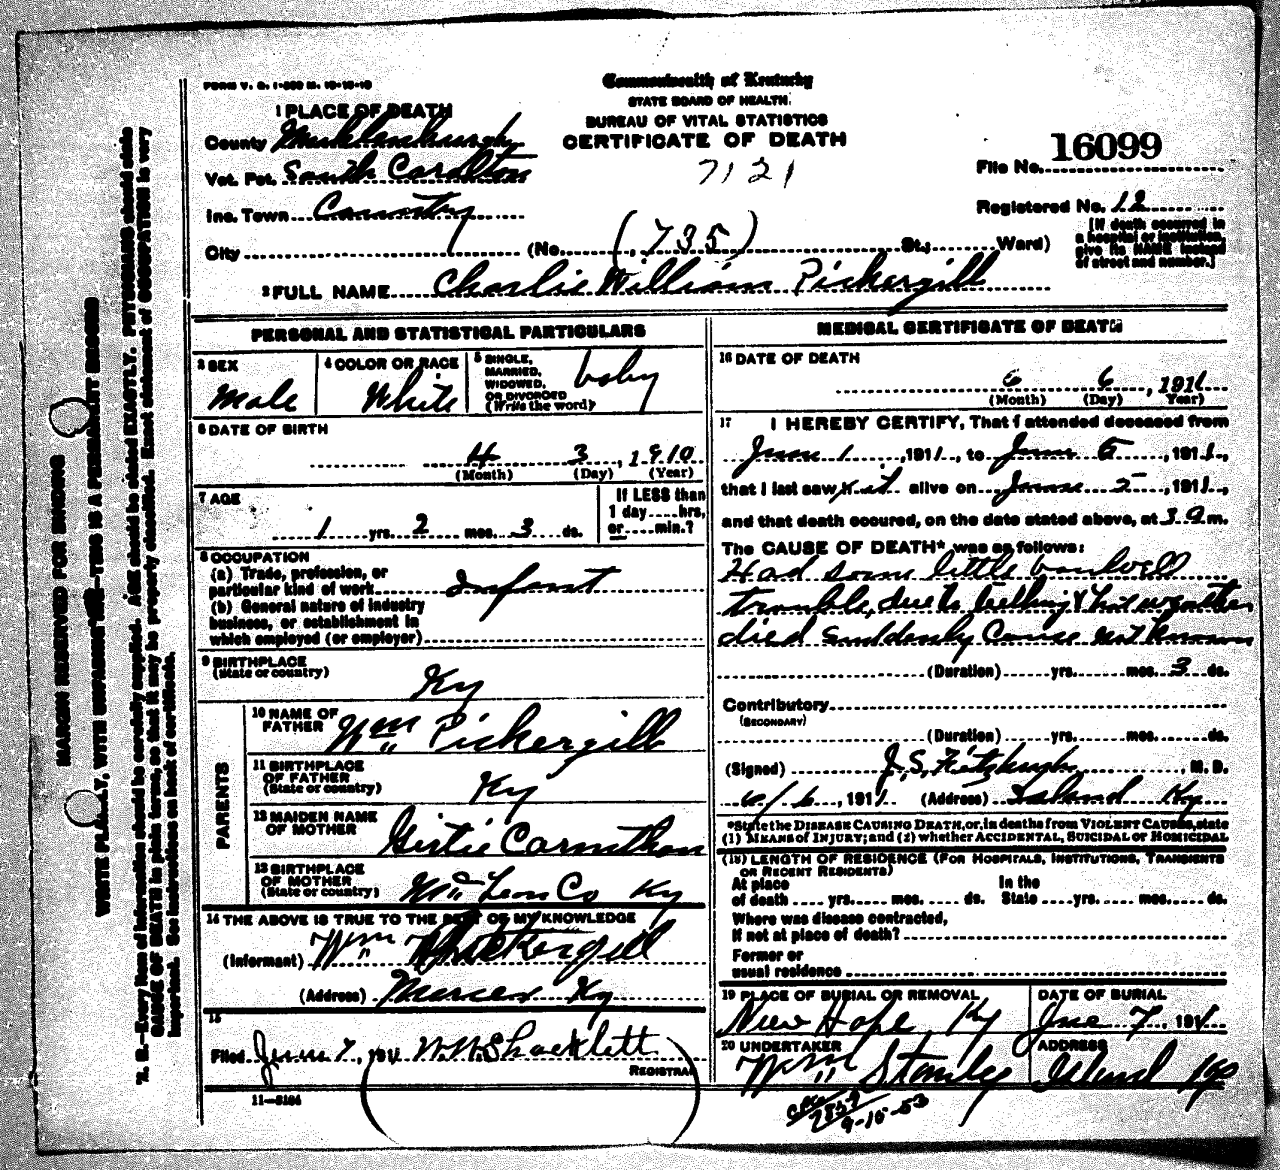 FORM V. S. 1-
Commonwealth of Kentucky
STATE BOARD OF HEALTH.
BUREAU OF VITAL STATISTICS
CERTIFICATE OF DEATH
7121
File No. 16099
Registered No. 12
[If death occurred in
a hospital or institution,
give its NAME instead
of street and number.]
1 PLACE OF DEATH
County Muhlenburgh
Vot. Pct. South Carolton
Inc. Town Country
City (No. (735) St.; Ward)
2 FULL NAME Charlie William Pickergill
PERSONAL AND STATISTICAL PARTICULARS
3 SEX
Male
4 COLOR OR RACE
White
5 SINGLE,
MARRIED,
WIDOWED,
OR DIVORCED
(Write the word)
baby
6 DATE OF BIRTH
4 3, 1910
(Month) (Day) (Year)
7 AGE
1 yrs. 2 mos. 3 ds.
If LESS than
1 day hrs,
or min.?
8 OCCUPATION
(a) Trade, profession, or
particular kind of work Infant
(b) General nature of industry
business, or establishment in
which employed (or employer)
9 BIRTHPLACE
(State or country)
Ky
PARENTS
10 NAME OF
FATHER Wm Pickergill
11 BIRTHPLACE
OF FATHER
(State or country) Ky
12 MAIDEN NAME
OF MOTHER Girtie
13 BIRTHPLACE
OF MOTHER
(State or country) McLean Co Ky
14 THE ABOVE IS TRUE TO THE BEST OF MY KNOWLEDGE
(Informant) Wm Pickergill
(Address) Ky
15
Filed June 7, 1911 W.W. Shacklett
REGISTRAR
11-3184
MEDICAL CERTIFICATE OF DEATH
16 DATE OF DEATH
6 6, 1911
(Month) (Day) Year)
17 I HEREBY CERTIFY, That I attended deceased from
June 1, 1911, to June 5, 1911,
that I last saw it alive on June 5, 1911,
and that death occured, on the date stated above, at 3 a m.
The CAUSE OF DEATH* was as follows:
Had som little bowell
trouble, due to teething & hot weather
died suddenly Cause not known
(Duration) yrs. mos. 3 ds.
Contributory
(SECONDARY)
(Duration) yrs. mos. ds.
(Signed) J. S. Fitzhugh, M. D.
6/6, 1911 (Address) Island Ky
*State the DISEASE CAUSING DEATH, or, in deaths from VIOLENT CAUSES, state
(1) MEANS of INJURY; and (2) whether ACCIDENTAL, SUICIDAL or HOMICIDAL
(18) LENGTH OF RESIDENCE (FOR HOSPITALS, INSTITUTIONS, TRANSIENTS
OR RECENT RESIDENTS)
At place
of death yrs. mos. ds.
In the
State yrs. mos. ds.
Where was disease contracted,
If not at place of death?
Former or
usual residence
19 PLACE OF BURIAL OR REMOVAL
New Hope, Ky
DATE OF BURIAL
Jne 7, 1911
20 UNDERTAKER
Wm Stanley
ADDRESS
Island Ky
9-15-53
MARGIN RESERVED FOR BINDING
WRITE PLAINLY, WITH UNFADING INK—THIS IS A PERMANENT RECORD
N. B.—Every item of information should be carefully supplied. AGE should be stated EXACTLY. PHYSICIANS should state
CAUSE OF DEATH in plain terms, so that it may be properly classified. Exact statement of OCCUPATION is very
important. See instructions on back of certificate.